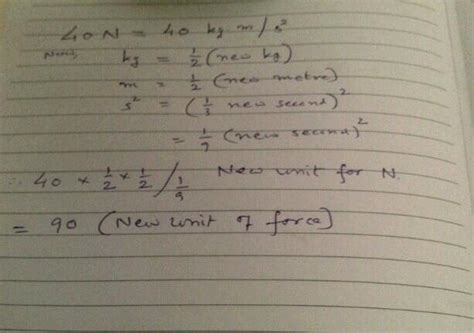 40 N = 40 kg m/s²
Now,
kg = 1/2 (new kg)
m = 1/2 (new metre)
s² = (1/3 new second)²
= 1/9 (new second)²
∴ 40 × 1/2 × 1/2 / 1/9 New unit for N.
= 90 (New unit of force)